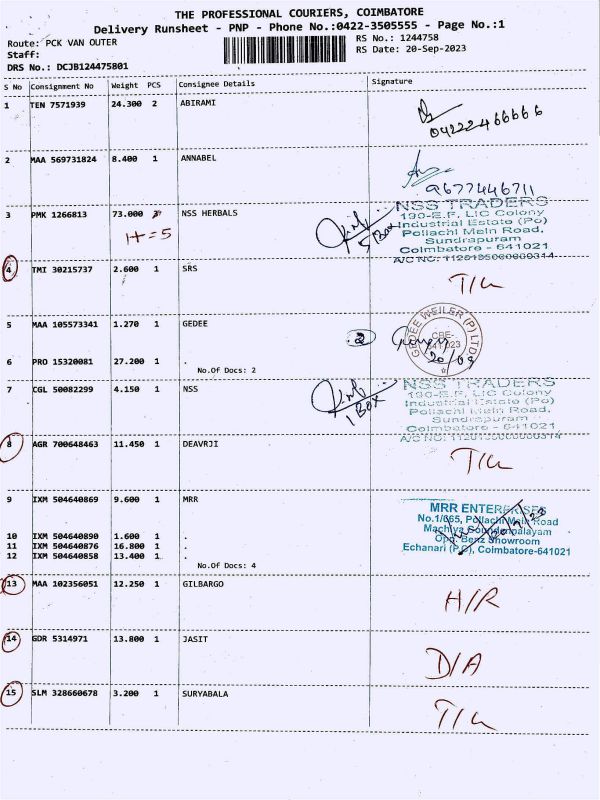 THE PROFESSIONAL COURIERS, COIMBATORE
Delivery Runsheet - PNP - Phone No.:0422-3505555 - Page No.:1
Route: PCK VAN OUTER
RS No.: 1244758
Staff:
RS Date: 20-Sep-2023
DRS No.: DCJB124475801
S No Consignment No Weight PCS Consignee Details Signature
1 TEN 7571939 24.300 2 ABIRAMI
04222466666
2 MAA 569731824 8.400 1 ANNABEL
9677446711
3 PMK 1266813 73.000 NSS HERBALS
1+=5
5 Box
NSS TRADERS
190-E.F, LIC Colony
Industrial Estate (Po)
Pollachi Main Road,
Sundrapuram
Coimbatore - 641021
4 TMI 30215737 2.600 1 SRS
T/L
5 MAA 105573341 1.270 1 GEDEE
2
GEDEE WEILER (P) LTD
CBE-
641 023
20/09
6 PRO 15320081 27.200 1 .
No.Of Docs: 2
7 CGL 50082299 4.150 1 NSS
1 Box
NSS TRADERS
190-E.F, LIC Colony
Industrial Estate (Po)
Pollachi Main Road,
Sundrapuram
Coimbatore - 641021
8 AGR 700648463 11.450 1 DEAVRJI
T/L
9 IXM 504640869 9.600 1 MRR
MRR ENTERPRISES
No.1/665, Pollachi Main Road
Machiya Goundenpalayam
Opp. Benz Showroom
Echanari (P.O), Coimbatore-641021
10 IXM 504640890 1.600 1 .
11 IXM 504640876 16.800 1 .
12 IXM 504640858 13.400 1 .
No.Of Docs: 4
13 MAA 102356051 12.250 1 GILBARGO
H/R
14 GDR 5314971 13.800 1 JASIT
D/A
15 SLM 328660678 3.200 1 SURYABALA
T/L